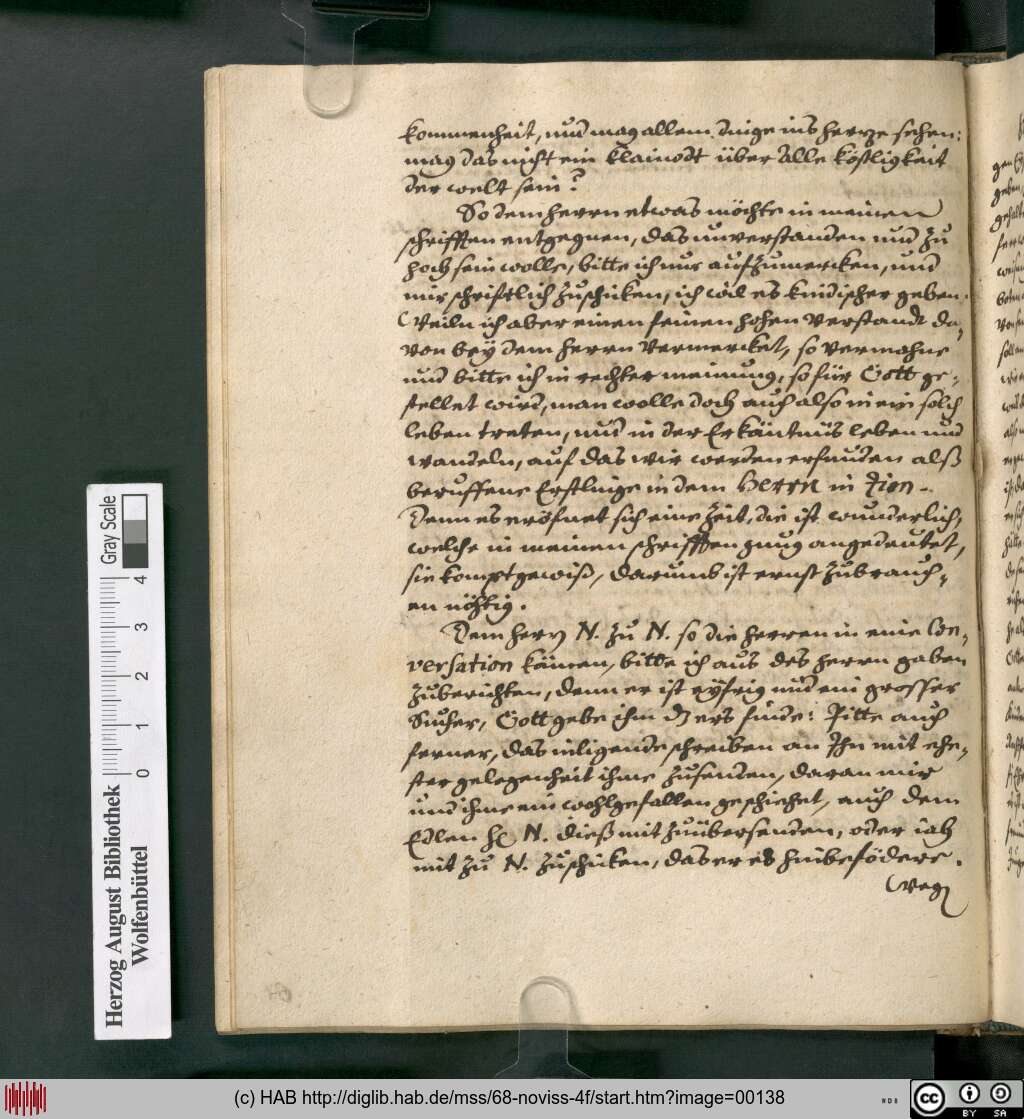 kommenheit, und mag allem dinge ins hertze sehen:
mag das nicht ein Klainodt über alle köstligkeit
der welt sein?
So dem herrn etwas möchte in meinen
schrifften entgegnen, das unverstanden und zu
hoch sein wolle, bitte ich nur aufzumercken, und
mir schriftlich zuschicken, ich wil es kindischer geben.
Weiln ich aber einen feinen hohen Verstandt da,
von bey dem herrn Vermercket, so vermahne
und bitte ich in rechter meinung, so für Gott ge,
stellet wird, man wolle doch auch also in ein solch
leben treten, und in der Erkäntnüs leben und
wandeln, auf das wir werden erfunden alß
beruffene Erstlinge in dem Herrn in Zion.
Denn es eröfnet sich eine Zeit, die ist wunderlich,
welche in meinen schrifften gnug angedeutet,
sie kompt gewiß, darumb ist ernst zubrauch,
en nöhtig.
Dem herrn N. zu N. so die herren in eine Con,
versation kämen, bitte ich aus des herrn gaben
zuberichten, denn er ist eyfrig und ein grosser
Sucher, Gott gebe ihm dz ers finde: Bitte auch
ferner, das inligende schreiben an Ihn mit ehe,
ster gelegenheit ihme zusenden, daran mir
und ihme ein wohlgefallen geschiehet, auch dem
Edlen H. N. dieß mit zuübersenden, oder ja
mit zu N. zuschicken, das er es hinbefödere.
Weg
Gray Scale
0 1 2 3 4
Herzog August Bibliothek
Wolfenbüttel
(c) HAB http://diglib.hab.de/mss/68-noviss-4f/start.htm?image=00138
cc BY SA